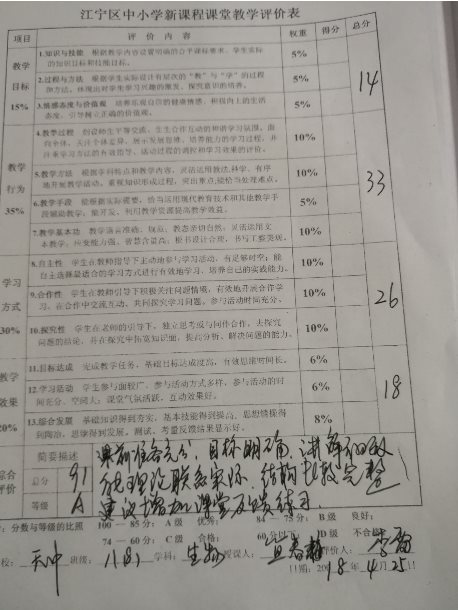 江宁区中小学新课程课堂教学评价表
项目 评价内容 权重 得分 总分
教学目标 15%
1.知识与技能 根据教学内容设置明确的合乎课标要求、学生实际的知识目标和技能目标。 5%
2.过程与方法 根据学生实际设计有层次的“教”与“学”的过程和方法，体现出对学生学习兴趣的激发、探究意识的培养。 5%
3.情感态度与价值观 培养乐观自信的健康情感、积极向上的生活态度，引导树立正确的价值观。 5%
14
教学行为 35%
4.教学过程 创设师生平等交流、生生合作互动的和谐学习氛围，面向全体，关注个体差异，展示发展思维，培养能力的学习过程，并注重学习方法的有效指导、活动过程的调控和学习效果的评价。 10%
5.教学方法 根据学科特点和教学内容，灵活运用教法，科学、有序地开展教学活动，重视知识形成过程，突出重点，能恰当处理难点。 10%
6.教学手段 能根据实际需要，恰当运用现代教育技术和其他教学手段辅助教学，能开发、利用教学资源提高教学效益。 5%
7.教学基本功 教学语言准确、规范；教态亲切自然，灵活运用文本教学，应变能力强、智慧含量高；板书设计合理，书写工整美观。 10%
33
学习方式 30%
8.自主性 学生在教师指导下主动地参与学习活动，有足够时空；能自主选择最适合的学习方式进行有效地学习，培养自己的实践能力。 10%
9.合作性 学生在教师引导下积极关注问题情境，有效地开展合作学习，在合作中交流互动、共同探究学习问题，参与活动时间充分。 10%
10.探究性 学生在老师的引导下，独立思考或与同伴合作，去探究问题的结论，并在探究中拓宽知识面，提高分析、解决问题的能力。 10%
26
教学效果 20%
11.目标达成 完成教学任务，基础目标达成度高，有效思维时间长。 6%
12.学习活动 学生参与面较广、参与活动方式多样、参与活动的时间充分、空间大；课堂气氛活跃，互动效果好。 6%
13.综合发展 基础知识得到夯实，基本技能得到提高，思想情操得到陶冶，思维得到发展。测试、考量反馈结果显示好。 8%
18
综合评价
简要描述
总分 91
等级 A
课前准备充分，目标明确，讲解细致
能理论联系实际，结构比较完整
建议增加课堂反馈练习
注：分数与等级的比照 100—85分：A级 优秀： 84—75分：B级 良好：
74—60分：C级 合格： 60分以下：D级 不合格
校： 天印 班级： 八(8) 学科：生物 授课人： 评价人：
日期：2018年4月25日